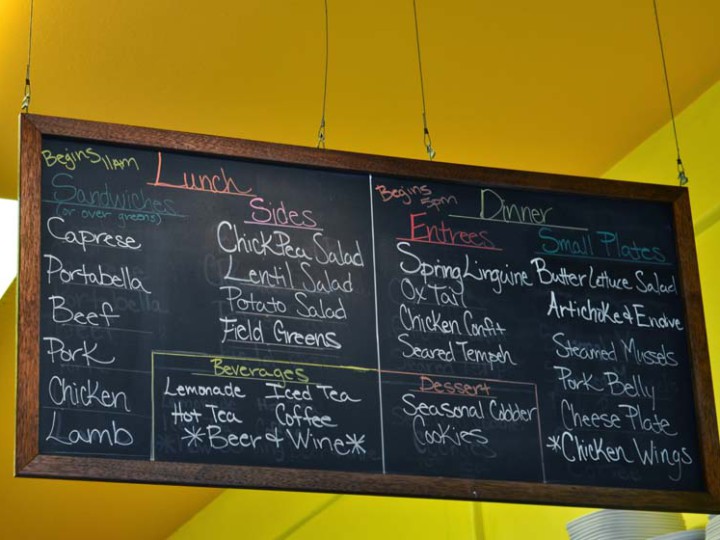 Begins 11am
Lunch
Sandwiches
(or over greens)
Caprese
Portabella
Beef
Pork
Chicken
Lamb
Sides
ChickPea Salad
Lentil Salad
Potato Salad
Field Greens
Beverages
Lemonade Iced Tea
Hot Tea Coffee
*Beer & Wine*
Begins 5pm
Dinner
Entrees
Spring Linguine
Ox Tail
Chicken Confit
Seared Tempeh
Dessert
Seasonal Cobber
Cookies
Small Plates
Butter Lettuce Salad
Artichoke & Endive
Steamed Mussels
Pork Belly
Cheese Plate
*Chicken Wings